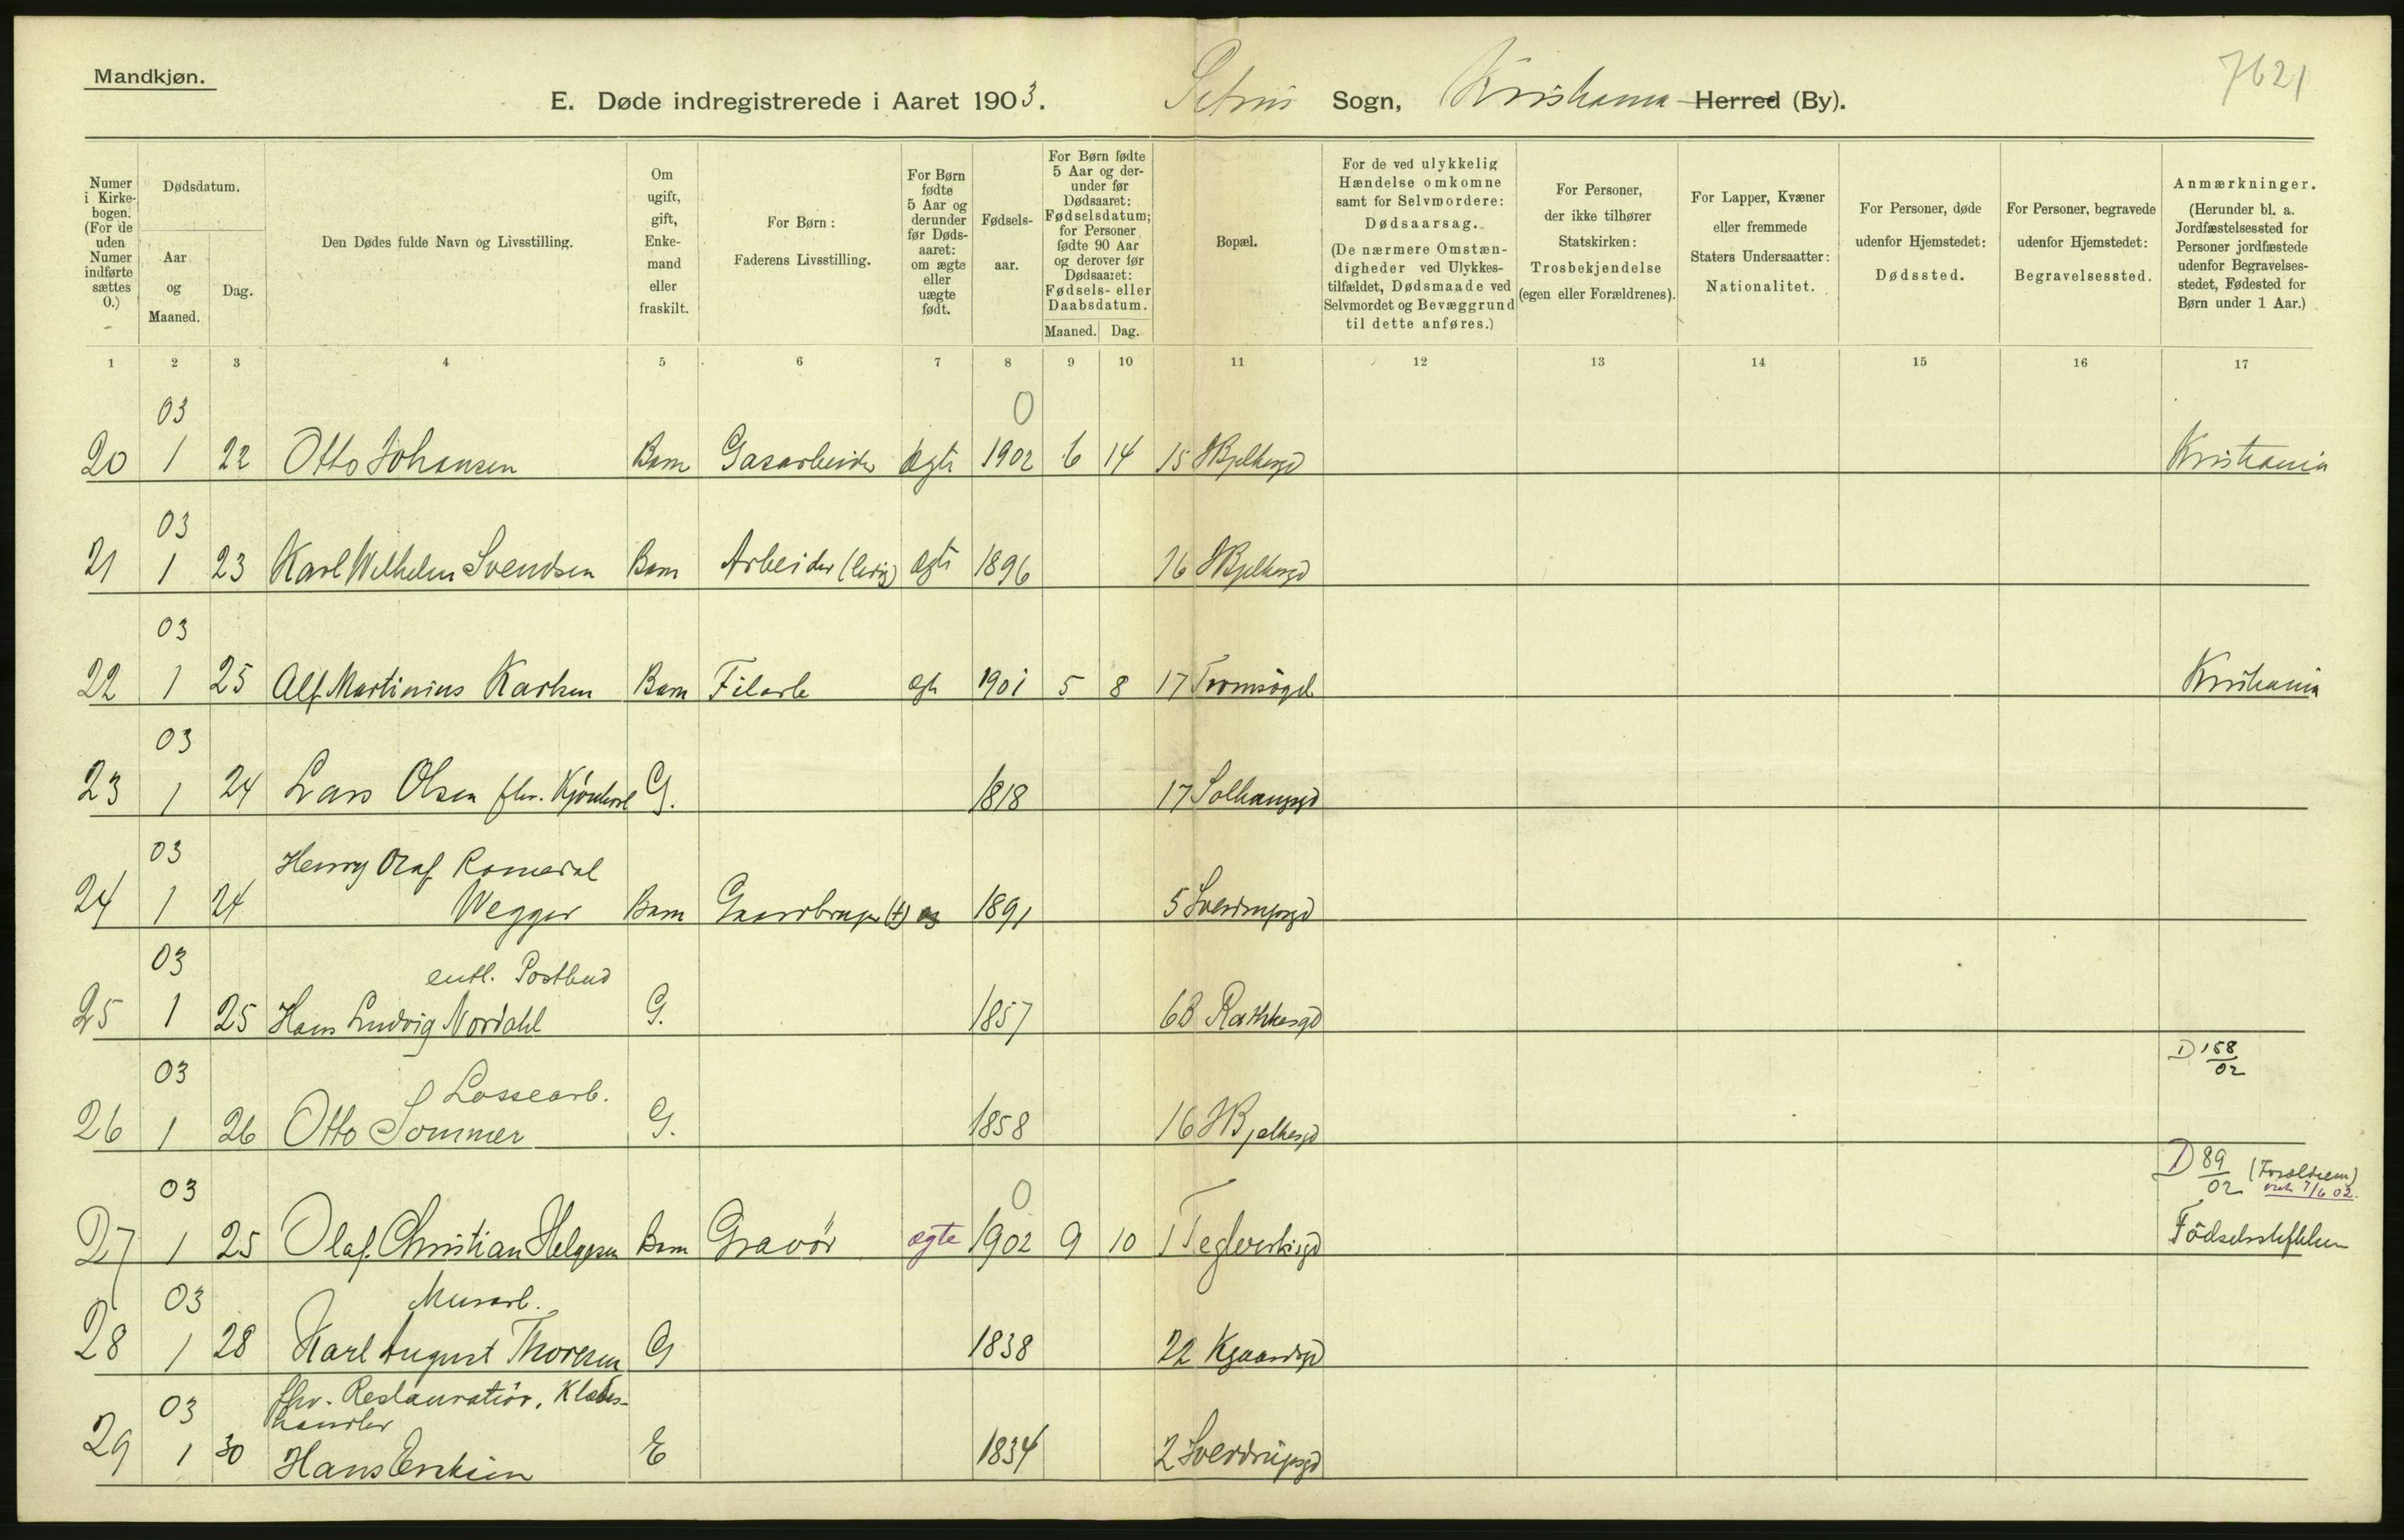 Mandkjøn.
7621
E. Døde indregistrerede i Aaret 1903. Petrus Sogn, Kristiania Herred (By).
Numer i Kirkebogen. (For de uden Numer indførte sættes 0.)
Dødsdatum.
Aar og Maaned.
Dag.
Den Dødes fulde Navn og Livsstilling.
Om ugift, gift, Enkemand eller fraskilt.
For Børn: Faderens Livsstilling.
For Børn fødte 5 Aar og derunder før Dødsaaret: om ægte eller uægte født.
Fødselsaar.
For Børn fødte 5 Aar og derunder før Dødsaaret: Fødselsdatum; for Personer fødte 90 Aar og derover før Dødsaaret: Fødsels- eller Daabsdatum.
Maaned. Dag.
Bopæl.
For de ved ulykkelig Hændelse omkomne samt for Selvmordere: Dødsaarsag. (De nærmere Omstændigheder ved Ulykkestilfældet, Dødsmaade ved Selvmordet og Bevæggrund til dette anføres.)
For Personer, der ikke tilhører Statskirken: Trosbekjendelse (egen eller Forældrenes).
For Lapper, Kvæner eller fremmede Staters Undersaatter: Nationalitet.
For Personer, døde udenfor Hjemstedet: Dødssted.
For Personer, begravede udenfor Hjemstedet: Begravelsessted.
Anmærkninger. (Herunder bl. a. Jordfæstelsessted for Personer jordfæstede udenfor Begravelsesstedet, Fødested for Børn under 1 Aar.)
1 2 3 4 5 6 7 8 9 10 11 12 13 14 15 16 17
03 0
20 1 22 Otto Johansen Barn Gasarbeider ægte 1902 6 14 15 HBjelkesgd Kristiania
03
21 1 23 Karl Wilhelm Svendsen Barn Arbeider ægte 1896 16 HBjelkesgd
03
22 1 25 Alf Martinius Karlsen Barn Filarb 1901 5 8 17 Tromsögd Kristiania
03
23 1 24 Lars Olsen fhv. G. 1818 17 Solhaugsgd
03 Henry Olaf Romedal
24 1 24 Wegger Barn Gaardbruger (†) 1891 5 Sverdrupsgd
03 entl. Postbud
25 1 25 Hans Ludvig Nordahl G. 1857 6B Rathkesgd
D 158/02
03 Lossearb.
26 1 26 Otto Sommer G. 1858 16 HBjelkesgd
D 89/02 (Forældrene)
7/6 02.
03 0
27 1 25 Olaf Christian Helgesen Barn Gravör ægte 1902 9 10 1 Teglverksgd Födselsstiftelsen
03 Murarb.
28 1 28 Karl August Thoresen G 1838 22 Kgaardsgd
fhv. Restauratiør, Klædes-
03 handler
29 1 30 Hans Erichsen E 1834 2 Sverdrupsgd